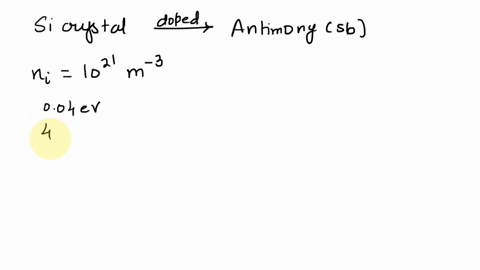 Si crystal doped → Antimony (sb)
nᵢ = 10²¹ m⁻³
0.04 ev
4